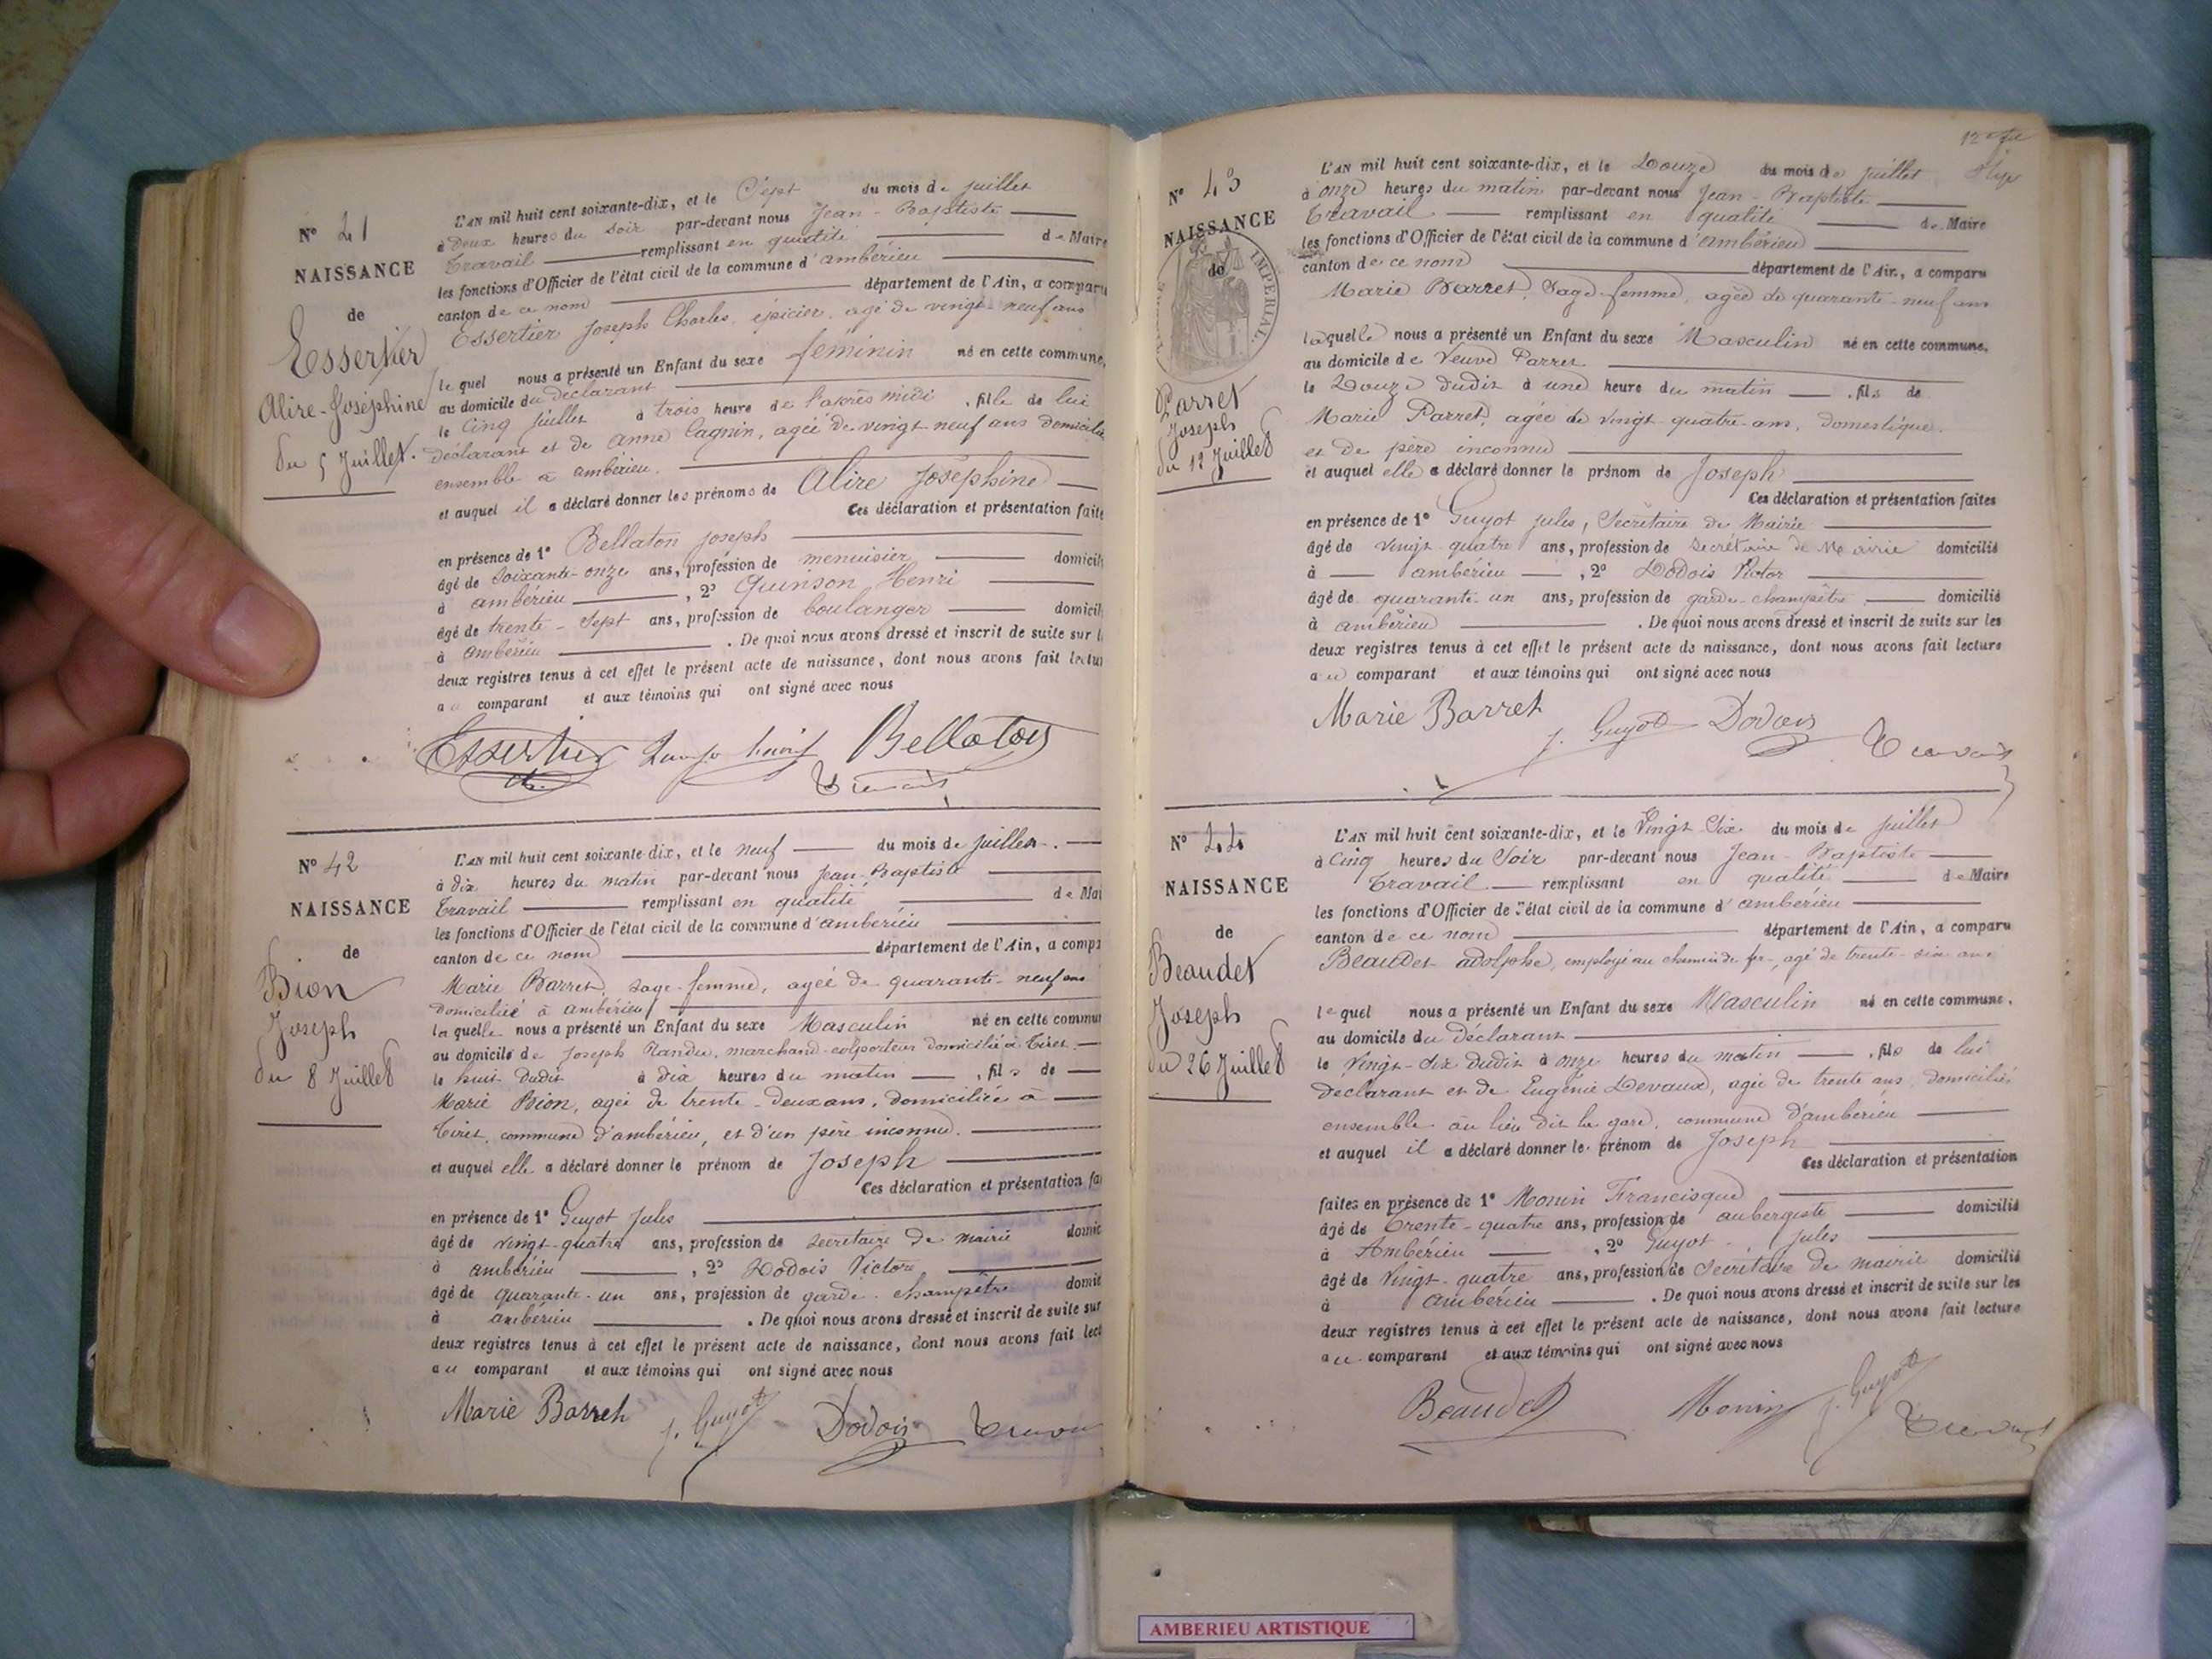 N° 41
NAISSANCE
de
Essertier
Alire-Joséphine
du 5 Juillet.
L'AN mil huit cent soixante-dix, et le Sept du mois de juillet
à Deux heures du soir par-devant nous Jean-Baptiste
Travail remplissant en qualité de Maire
les fonctions d'Officier de l'état civil de la commune d'ambérieu
canton de ce nom département de l'Ain, a comparu
Essertier Joseph Charles, épicier, agé de vingt-neuf ans
le quel nous a présenté un Enfant du sexe féminin né en cette commune,
au domicile du déclarant
le Cinq juillet à trois heure de l'après midi , fille de lui
déclarant et de anne Cagnin, agée de vingt neuf ans domicilié
ensemble à ambérieu.
et auquel il a déclaré donner les prénoms de Alire Joséphine
Ces déclaration et présentation faite
en présence de 1° Bellaton joseph
âgé de Soixante-onze ans, profession de menuisier domicili
à ambérieu , 2° Quinson Henri
âgé de trente-Sept ans, profession de boulanger domicili
à ambérieu . De quoi nous avons dressé et inscrit de suite sur l
deux registres tenus à cet effet le présent acte de naissance, dont nous avons fait lectur
au comparant et aux témoins qui ont signé avec nous
Essertier Bellaton
Travail
N° 42
NAISSANCE
de
Bion
Joseph
du 8 Juillet
L'AN mil huit cent soixante-dix, et le neuf du mois de juillet.
à dix heures du matin par-devant nous Jean-Baptiste
Travail remplissant en qualité de Mai
les fonctions d'Officier de l'état civil de la commune d'ambérieu
canton de ce nom département de l'Ain, a compa
Marie Barret, sage-femme, agée de quarante-neuf ans
domiciliée à ambérieu
la quelle nous a présenté un Enfant du sexe Masculin né en cette commu
au domicile de Joseph marchand-colporteur domicilié à Tiret
le huit dudit à dix heures du matin , fils de
Marie Bion, agée de trente-deux ans, domiciliée à
Tiret, commune d'ambérieu, et d'un père inconnu.
et auquel elle a déclaré donner le prénom de Joseph
Ces déclaration et présentation fa
en présence de 1° Guyot Jules
âgé de vingt-quatre ans, profession de secrétaire de mairie domic
à ambérieu , 2° Dodois Victor
âgé de quarante-un ans, profession de garde-champêtre domic
à ambérieu . De quoi nous avons dressé et inscrit de suite sur
deux registres tenus à cet effet le présent acte de naissance, dont nous avons fait lect
au comparant et aux témoins qui ont signé avec nous
Marie Barret J. Guyot Dodois Travail
N° 43
NAISSANCE
de
IMPERIAL
Parret
Joseph
du 12 Juillet
L'AN mil huit cent soixante-dix, et le Douze du mois de juillet
à onze heures du matin par-devant nous Jean-Baptiste
Travail remplissant en qualité de Maire
les fonctions d'Officier de l'état civil de la commune d'ambérieu
canton de ce nom département de l'Ain, a comparu
Marie Barret, Sage-femme, agée de quarante-neuf ans
laquelle nous a présenté un Enfant du sexe Masculin né en cette commune,
au domicile de Veuve Parret
le Douze dudit à une heure du matin , fils de
Marie Parret, agée de vingt-quatre-ans, domestique.
et de père inconnu
et auquel elle a déclaré donner le prénom de Joseph
Ces déclaration et présentation faites
en présence de 1° Guyot jules, Secrétaire de Mairie
âgé de vingt-quatre ans, profession de Secrétaire de Mairie domicilié
à ambérieu , 2° Dodois Victor
âgé de quarante-un ans, profession de garde-champêtre domicilié
à ambérieu . De quoi nous avons dressé et inscrit de suite sur les
deux registres tenus à cet effet le présent acte de naissance, dont nous avons fait lecture
au comparant et aux témoins qui ont signé avec nous
Marie Barret J. Guyot Dodois Travail
N° 44
NAISSANCE
de
Beaudet
Joseph
du 26 Juillet
L'AN mil huit cent soixante-dix, et le Vingt Six du mois de juillet
à Cinq heures du Soir par-devant nous Jean-Baptiste
Travail remplissant en qualité de Maire
les fonctions d'Officier de l'état civil de la commune d'ambérieu
canton de ce nom département de l'Ain, a comparu
Beaudet adolphe, employé au chemin de fer, agé de trente-six ans
le quel nous a présenté un Enfant du sexe Masculin né en cette commune,
au domicile du Déclarant
le Vingt-six dudit à onze heures du matin , fils de lui
déclarant et de Eugénie Devaux, agée de trente ans, domiciliés
ensemble au lieu dit la gare, commune d'ambérieu
et auquel il a déclaré donner le prénom de Joseph
Ces déclaration et présentation
faites en présence de 1° Monin Francisque
âgé de Trente-quatre ans, profession de aubergiste domicilié
à Ambérieu , 2° Guyot Jules
âgé de Vingt-quatre ans, profession de Secrétaire de mairie domicilié
à ambérieu . De quoi nous avons dressé et inscrit de suite sur les
deux registres tenus à cet effet le présent acte de naissance, dont nous avons fait lecture
au comparant et aux témoins qui ont signé avec nous
Beaudet Monin J. Guyot Travail
AMBERIEU ARTISTIQUE